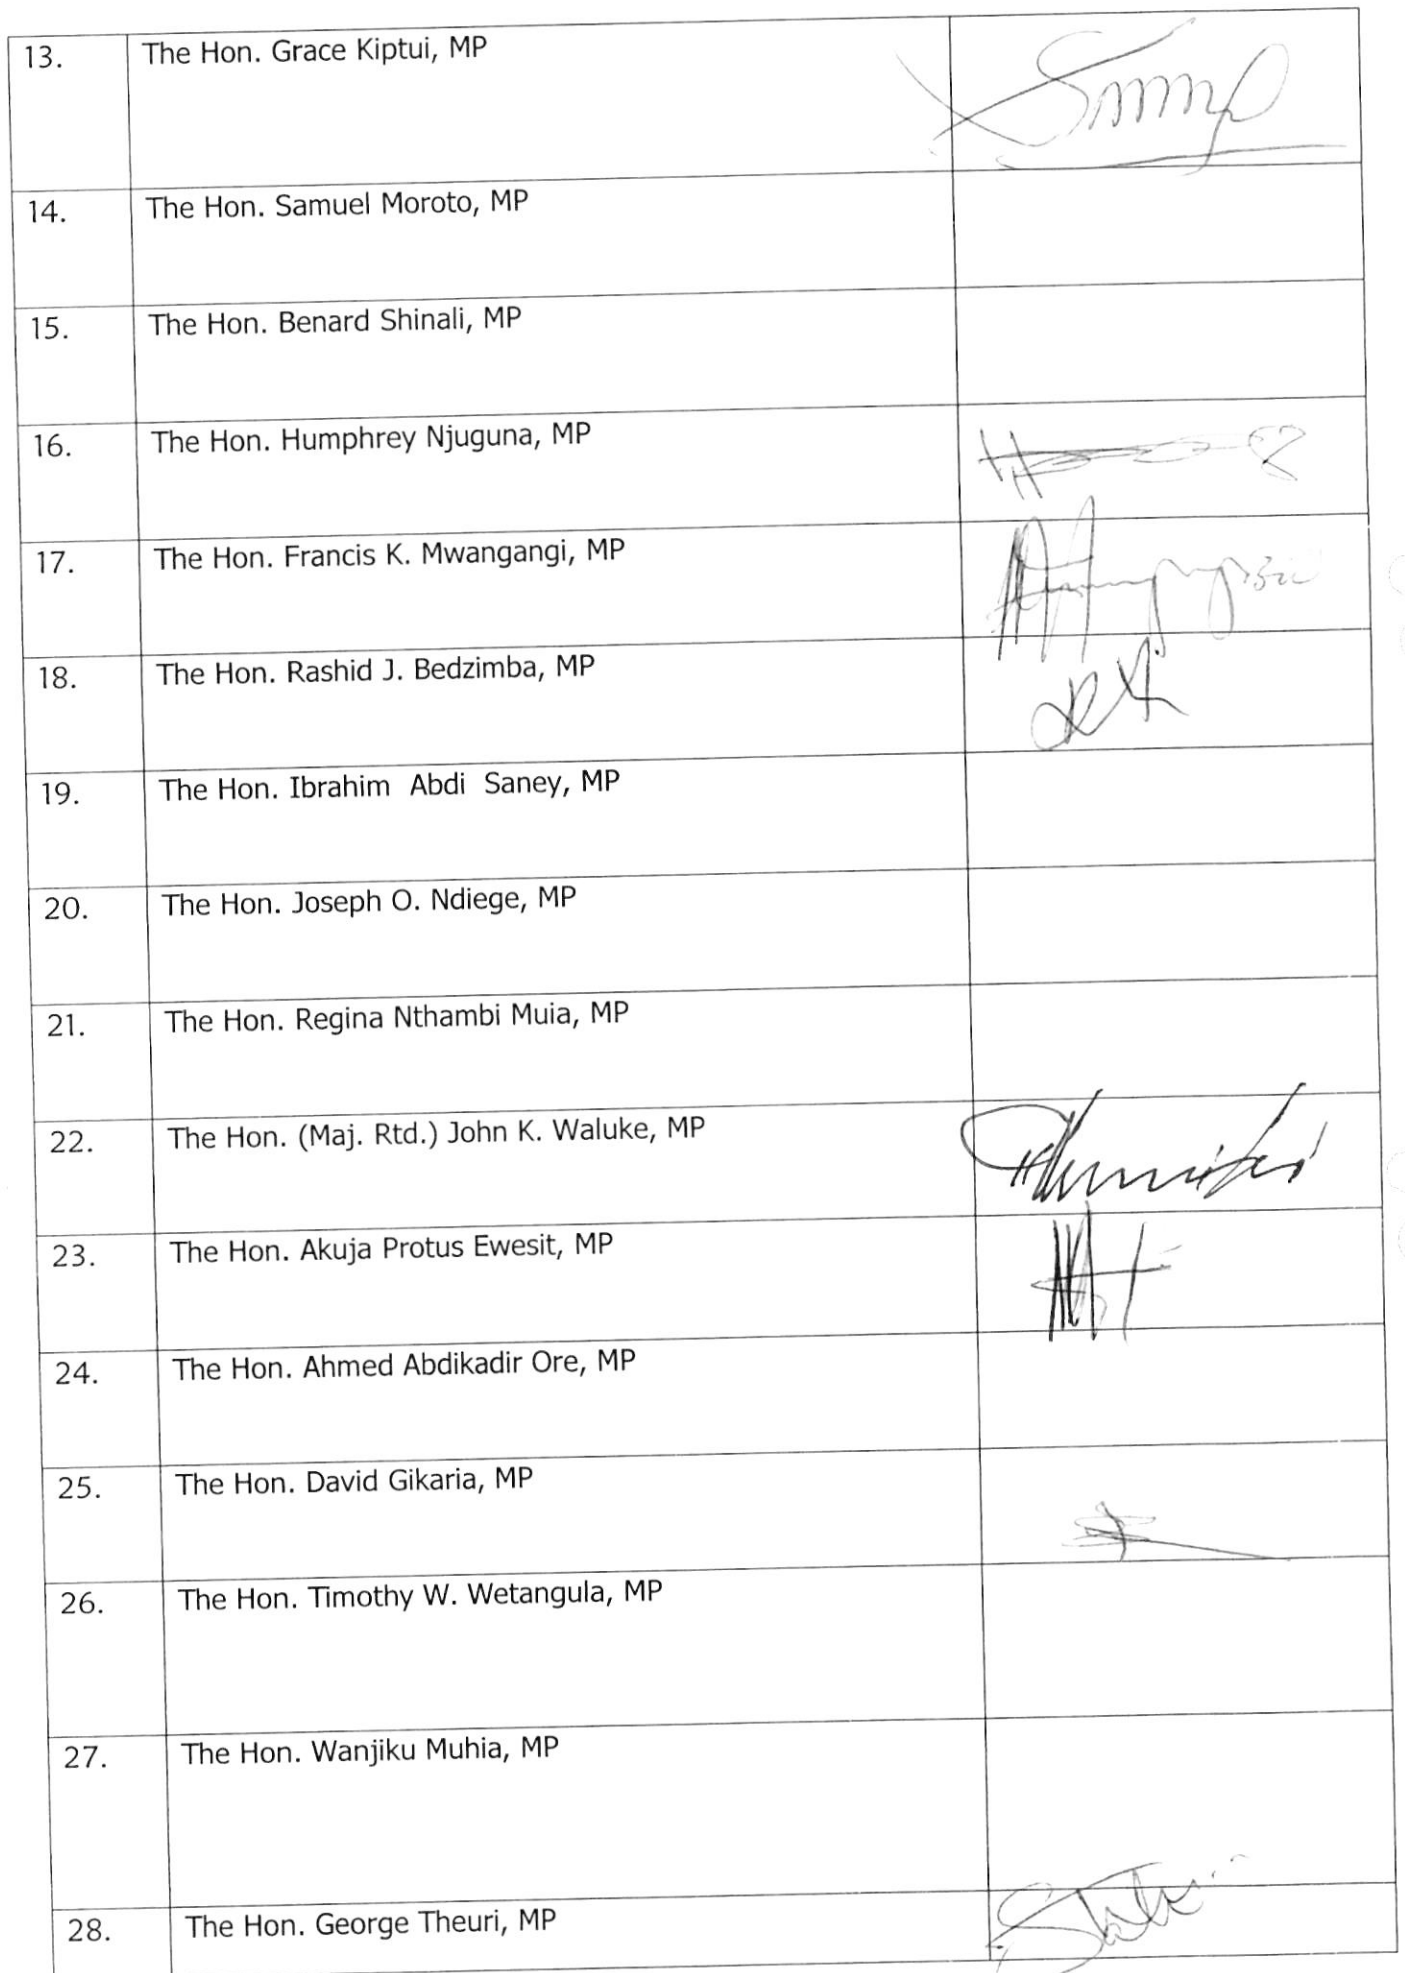 13. The Hon. Grace Kiptui, MP
14. The Hon. Samuel Moroto, MP
15. The Hon. Benard Shinali, MP
16. The Hon. Humphrey Njuguna, MP
17. The Hon. Francis K. Mwangangi, MP
18. The Hon. Rashid J. Bedzimba, MP
19. The Hon. Ibrahim Abdi Saney, MP
20. The Hon. Joseph O. Ndiege, MP
21. The Hon. Regina Nthambi Muia, MP
22. The Hon. (Maj. Rtd.) John K. Waluke, MP
23. The Hon. Akuja Protus Ewesit, MP
24. The Hon. Ahmed Abdikadir Ore, MP
25. The Hon. David Gikaria, MP
26. The Hon. Timothy W. Wetangula, MP
27. The Hon. Wanjiku Muhia, MP
28. The Hon. George Theuri, MP